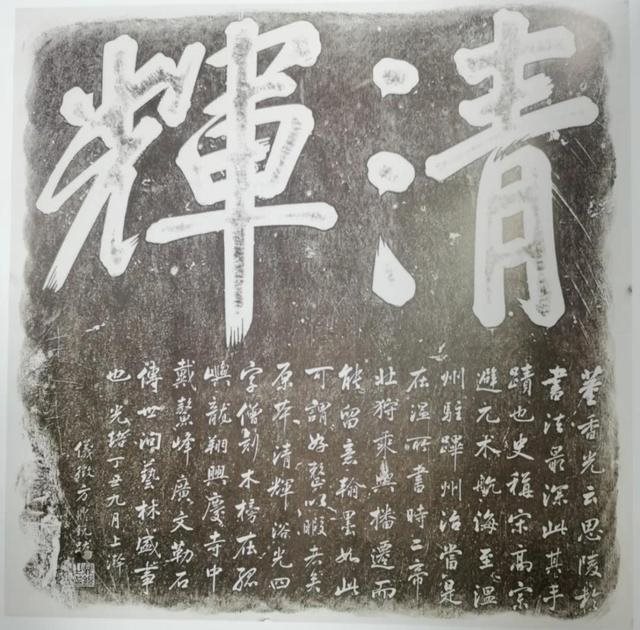 清輝
董香光云思陵於
書法最深此其手
蹟也史稱宋高宗
避元术航海至溫
州駐蹕州治當是
在溫所書時二帝
北狩乘輿播遷而
能留意翰墨如此
可謂好整以暇者矣
原本清輝浴光四
字僧刻木榜在孤
嶼龍翔興慶寺中
戴鰲峰廣文勒石
傳世洵藝林盛事
也光緒丁丑九月上澣
儀徵方鼎銳